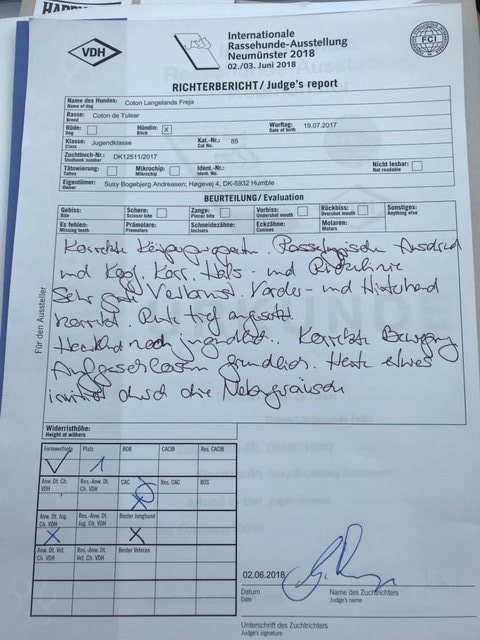 VDH
Internationale
Rassehunde-Ausstellung
Neumünster 2018
02./03. Juni 2018
FCI
RICHTERBERICHT / Judge's report
Name des Hundes: Coton Langelands Freja
Name of dog
Rasse: Coton de Tulear
Breed
Rüde: Hündin: X Wurftag: 19.07.2017
Dog Bitch Date of birth
Klasse: Jugendklasse Kat.-Nr.: 85
Class Cat No.
Zuchtbuch-Nr.: DK12511/2017
Studbook number
Tätowierung: Mikrochip: Ident.-Nr.: Nicht lesbar:
Tattoo Mikrochip Ident. No. Not readable
Eigentümer: Susy Bogebjerg Andreasen; Høgevej 4, DK-5932 Humble
Owner
BEURTEILUNG / Evaluation
Gebiss: Schere: Zange: Vorbiss: Rückbiss: Sonstiges:
Bite Scissor bite Pincer bite Undershot mouth Overshot mouth Anything else
Es fehlen: Prämolare: Schneidezähne: Eckzähne: Molaren:
Missing teeth Premolars Incisors Canines Molars
Korrekte
und Kopf. Korr. Hals - und Rückenlinie
Sehr gute Vorbrust. Vorder- und Hinterhand
korrekt. Rute tief angesetzt
noch jugendlich. Korrekte Bewegung
Aufgeschlossen freundlich. Heute etwas
irritiert durch die Nebengeräusche
Für den Aussteller
Widerristhöhe:
Height at withers
Formwertnote Platz BOB CACIB Res. CACIB
V 1
Anw. Dt. Ch. VDH Res.-Anw. Dt. Ch. VDH CAC Res. CAC BOS
X
Anw. Dt. Jug. Ch. VDH Res.-Anw. Dt. Jug. Ch. VDH Bester Junghund
X X
Anw. Dt. Vet. Ch. VDH Res.-Anw. Dt. Vet. Ch. VDH Bester Veteran
02.06.2018
Datum Name des Zuchtrichters
Date Judge's name
Unterschrift des Zuchtrichters
Judge's signature